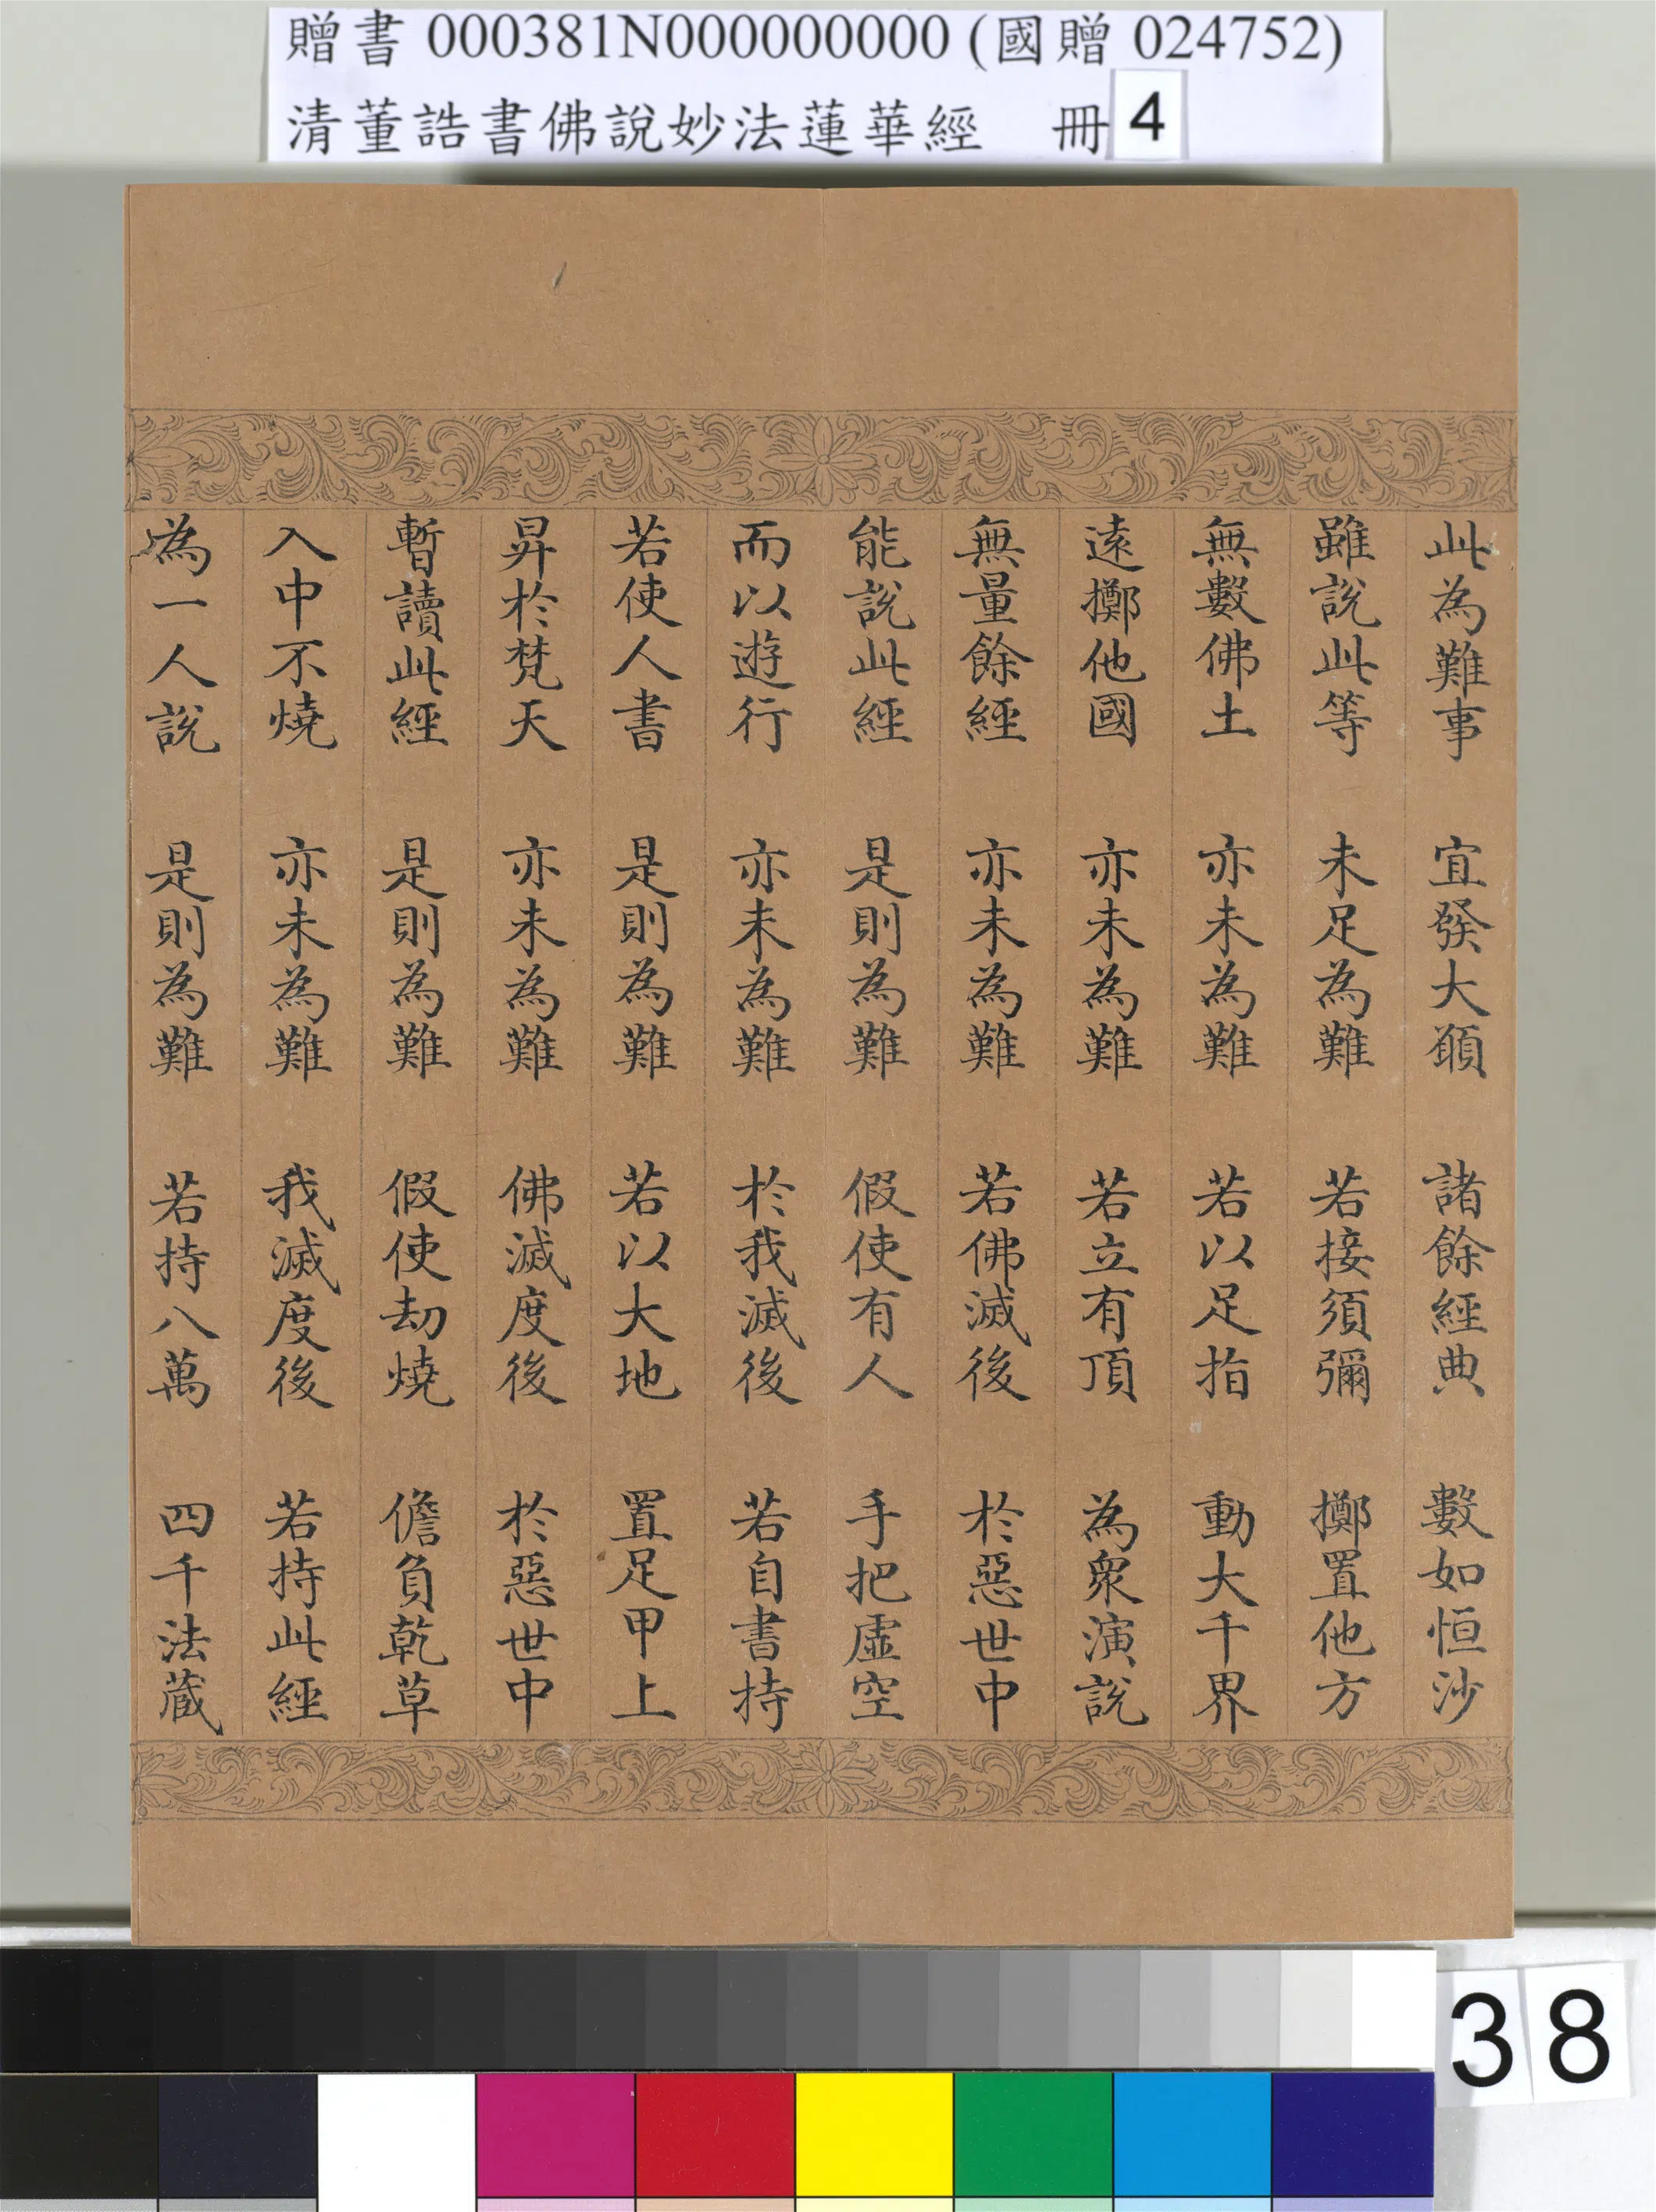 贈書 000381N000000000 (國贈 024752)
清董誥書佛說妙法蓮華經 冊 4
此為難事 宜發大願 諸餘經典 數如恒沙
雖說此等 未足為難 若接須彌 擲置他方
無數佛土 亦未為難 若以足指 動大千界
遠擲他國 亦未為難 若立有頂 為眾演說
無量餘經 亦未為難 若佛滅後 於惡世中
能說此經 是則為難 假使有人 手把虛空
而以遊行 亦未為難 於我滅後 若自書持
若使人書 是則為難 若以大地 置足甲上
昇於梵天 亦未為難 佛滅度後 於惡世中
暫讀此經 是則為難 假使劫燒 擔負乾草
入中不燒 亦未為難 我滅度後 若持此經
為一人說 是則為難 若持八萬 四千法藏
38